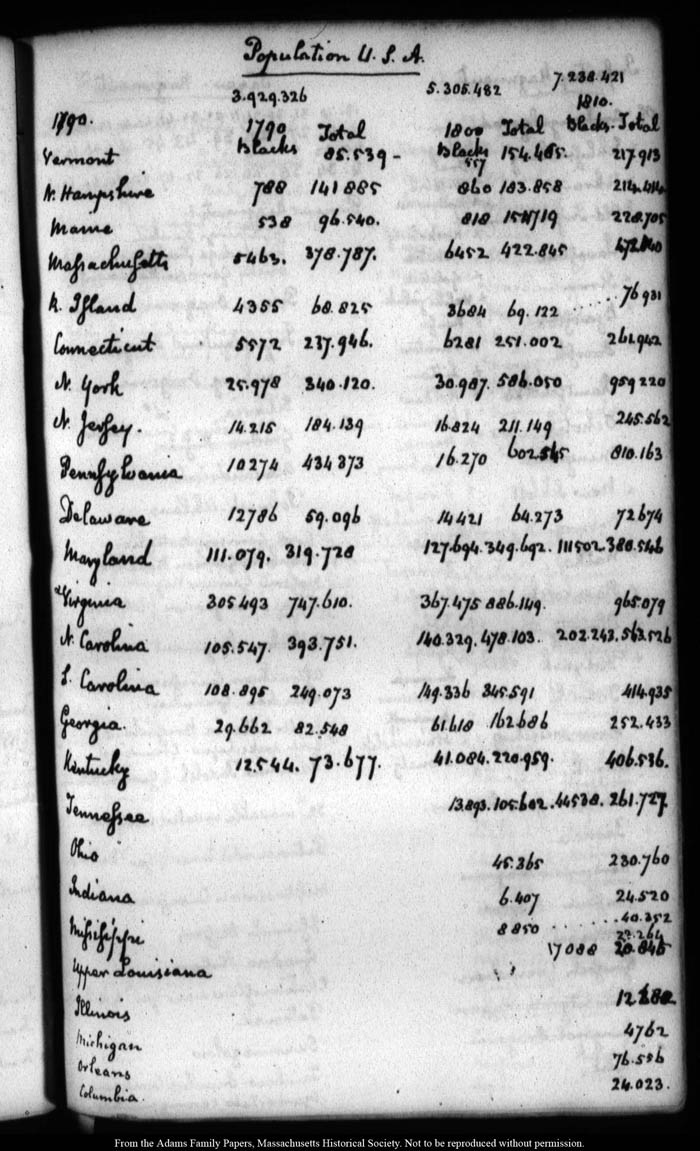 Population U.S.A.
3.929.326 5.305.482 7.238.421
1790. 1790 Total 1800 Total 1810.
Blacks Blacks Blacks. Total
Vermont 85.539 - 557 154.465. 217.913
N. Hampshire 788 141885 860 183.858 214.414
Maine 538 96.540. 818 151719 228.705
Massachusetts 5463. 378.787. 6452 422.845 472040
R. Island 4355 68.825 3684 69.122 ...... 76931
Connecticut 5572 237.946. 6281 251.002 261.942
N. York 25.978 340.120. 30.987. 586.050 959220
N. Jersey. 14.215 184.139 16.824 211.149 245.562
Pennsylvania 10274 434373 16.270 602.545 810.163
Delaware 12786 59.096 14421 64.273 72674
Maryland 111.079. 319.728 127.694. 349.692. 111502. 380.546
Virginia 305493 747.610. 367.475 886.149. 965.079
N. Carolina 105.547. 393.751. 140.329. 478.103. 202.243. 563.526
S. Carolina 108.895 249.073 149.336 345.591 414.935
Georgia. 29.662 82.548 61.618 162.686 252.433
Kentucky 12544. 73.677. 41.084. 220.959. 406.536.
Tennessee 13.893. 105.602. 44538. 261.727
Ohio 45.365 230.760
Indiana 6.407 24.520
Mississippi 8850 ...... 40.352
Upper Louisiana 17088 20.845
Illinois 12282
Michigan 4762
Orleans 76.556
Columbia. 24.023.
From the Adams Family Papers, Massachusetts Historical Society. Not to be reproduced without permission.